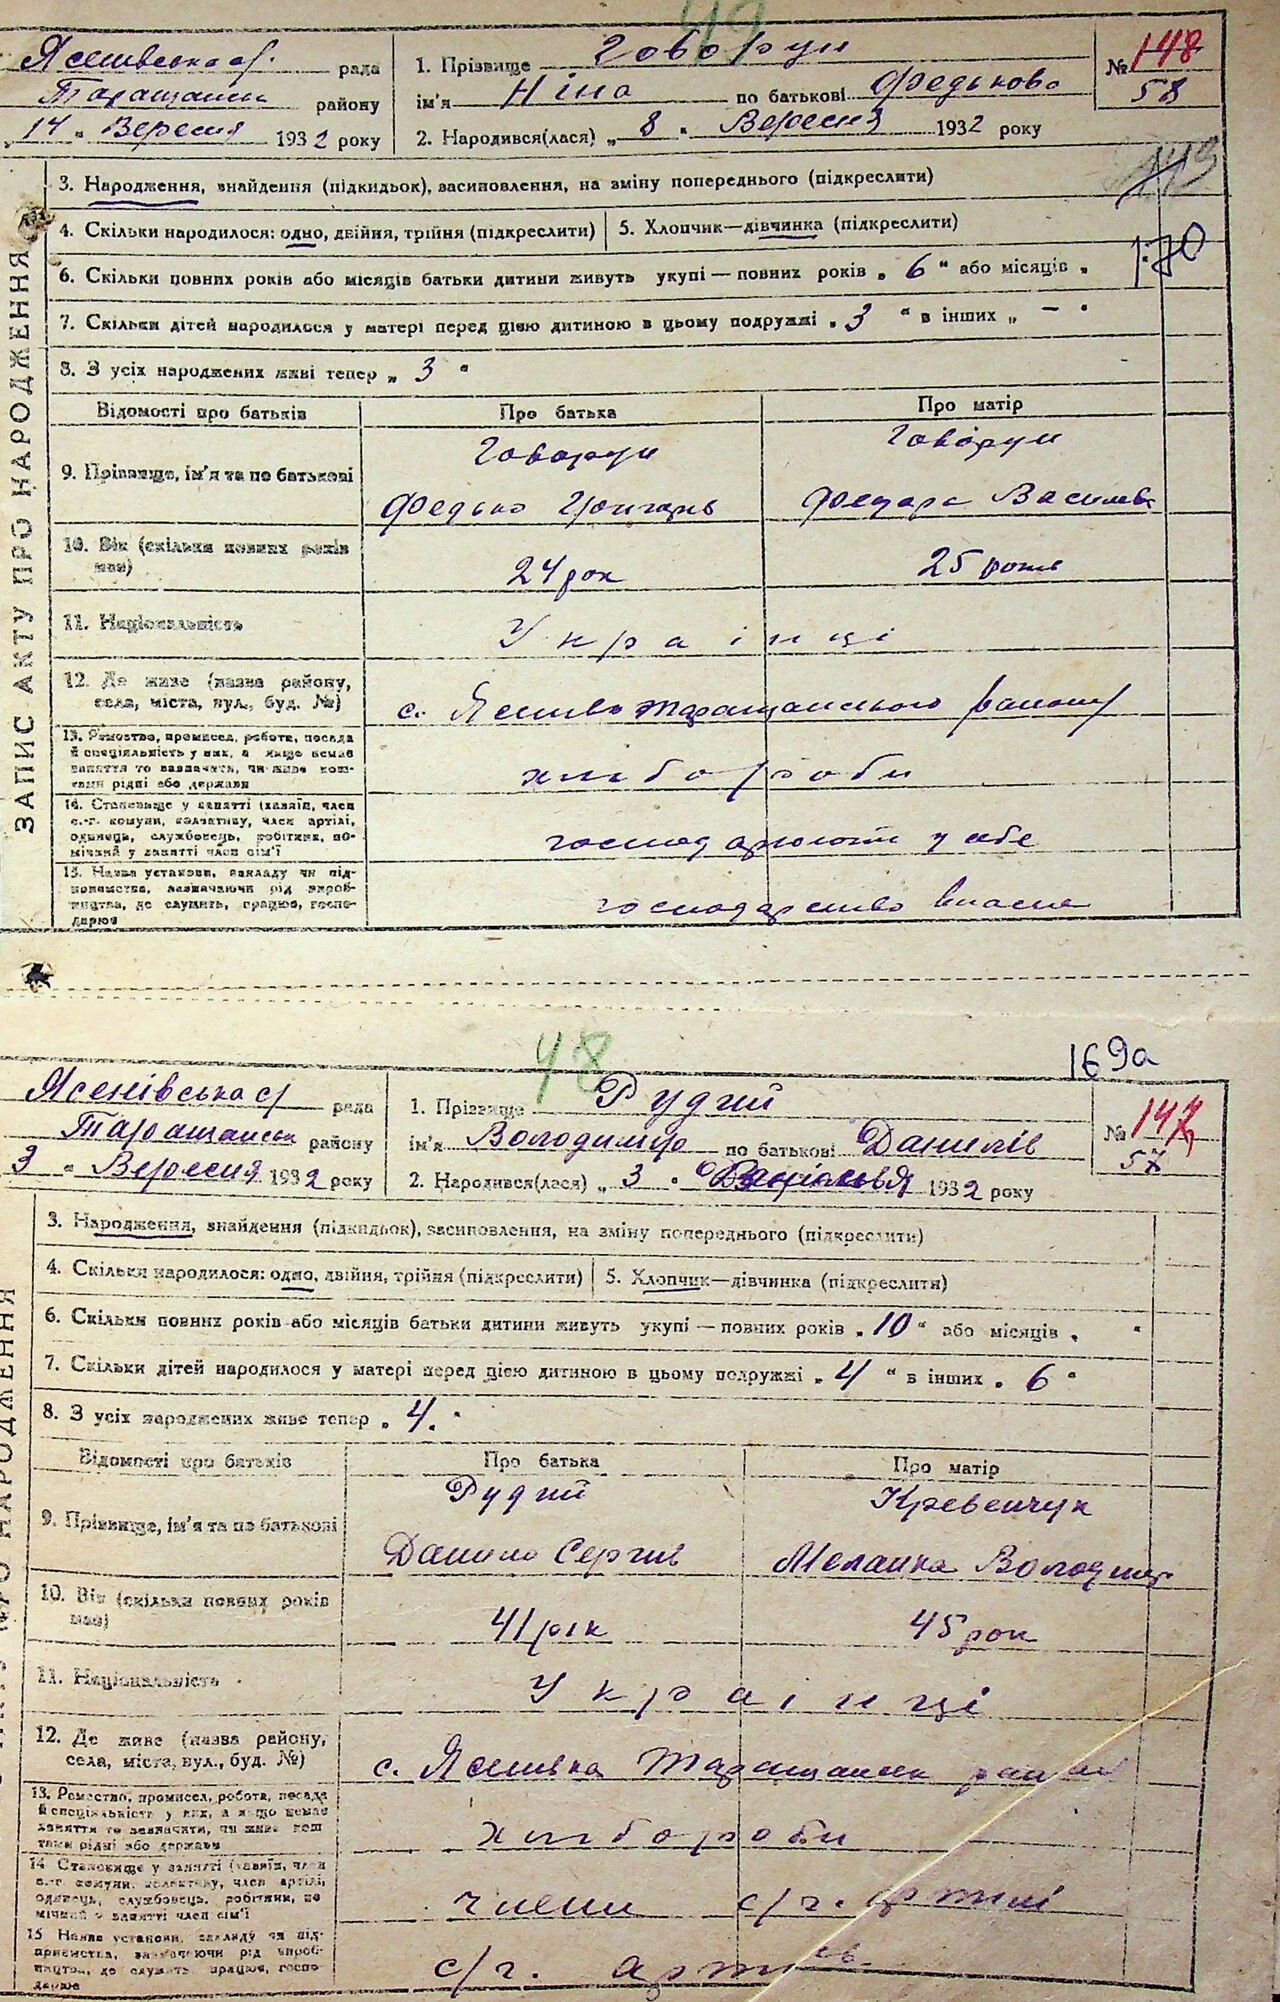 49
Ясенівська с/ рада
Таращанськ району
„ 14 " Вересня 1932 року
1. Прізвище Говорун
ім'я Ніна по батькові Федькова
2. Народився(лася) „ 8 " Вересня 1932 року
№ 148
58
ЗАПИС АКТУ ПРО НАРОДЖЕННЯ
3. Народження, знайдення (підкидьок), засиновлення, на зміну попереднього (підкреслити)
4. Скільки народилося: одно, двійня, трійня (підкреслити) 5. Хлопчик—дівчинка (підкреслити)
170
6. Скільки повних років або місяців батьки дитини живуть укупі — повних років „ 6 " або місяців „
7. Скільки дітей народилося у матері перед цією дитиною в цьому подружжі „ 3 " в інших „ — "
8. З усіх народжених живі тепер „ 3 "
Відомості про батьків Про батька Про матір
9. Прізвище, ім'я та по батькові
Говорун Говорун
Федько Василів
10. Вік (скільки повних років має)
24 рок 25 років
11. Національність
Українці
12. Де живе (назва району, села, міста, вул., буд. №)
с. Ясенівка Таращанського району
13. Ремество, промисел, робота, посада
й спеціяльність у них, а якщо немає
заняття то зазначити, чи живе кош-
тами рідні або держави
хлібороби
14. Становище у занятті (хазяїн, член
с.-г. комуни, колективу, член артілі,
одинець, службовець, робітник, по-
мічний у занятті член сім'ї
господарюють у себе
15. Назва установи, закладу чи під-
приємства, зазначаючи рід вироб-
ництва, де служить, працює, госпо-
дарює
господарство власне
48
169а
Ясенівська с/ рада
Таращанськ району
3 " Вересня 1932 року
1. Прізвище Рудий
ім'я Володимир по батькові Данилів
2. Народився(лася) „ 3 " 1932 року
№ 147
57
3. Народження, знайдення (підкидьок), засиновлення, на зміну попереднього (підкреслити)
4. Скільки народилося: одно, двійня, трійня (підкреслити) 5. Хлопчик—дівчинка (підкреслити)
6. Скільки повних років або місяців батьки дитини живуть укупі — повних років „ 10 " або місяців „ "
7. Скільки дітей народилося у матері перед цією дитиною в цьому подружжі „ 4 " в інших „ 6 "
8. З усіх народжених живе тепер „ 4. "
Відомості про батьків Про батька Про матір
9. Прізвище, ім'я та по батькові
Рудий Кревенчук
Данило Сергіїв Меланка Володимир
10. Вік (скільки повних років має)
41 рік 45 рок
11. Національність
Українці
12. Де живе (назва району, села, міста, вул., буд. №)
с. Ясенівка Таращанськ район
13. Ремество, промисел, робота, посада
й спеціяльність у них, а якщо немає
заняття то зазначити, чи живе кош
тами рідні або держави
хлібороби
14 Становище у занятті (хазяїн, член
с.-г. комуни, колективу, член артілі,
одинець, службовець, робітник, по
мічний у занятті член сім'ї
члени с/г. артілі
15 Назва установи, закладу чи під-
приємства, зазначаючи рід вироб-
ництва, де служить працює, госпо-
дарює
с/г. артіль